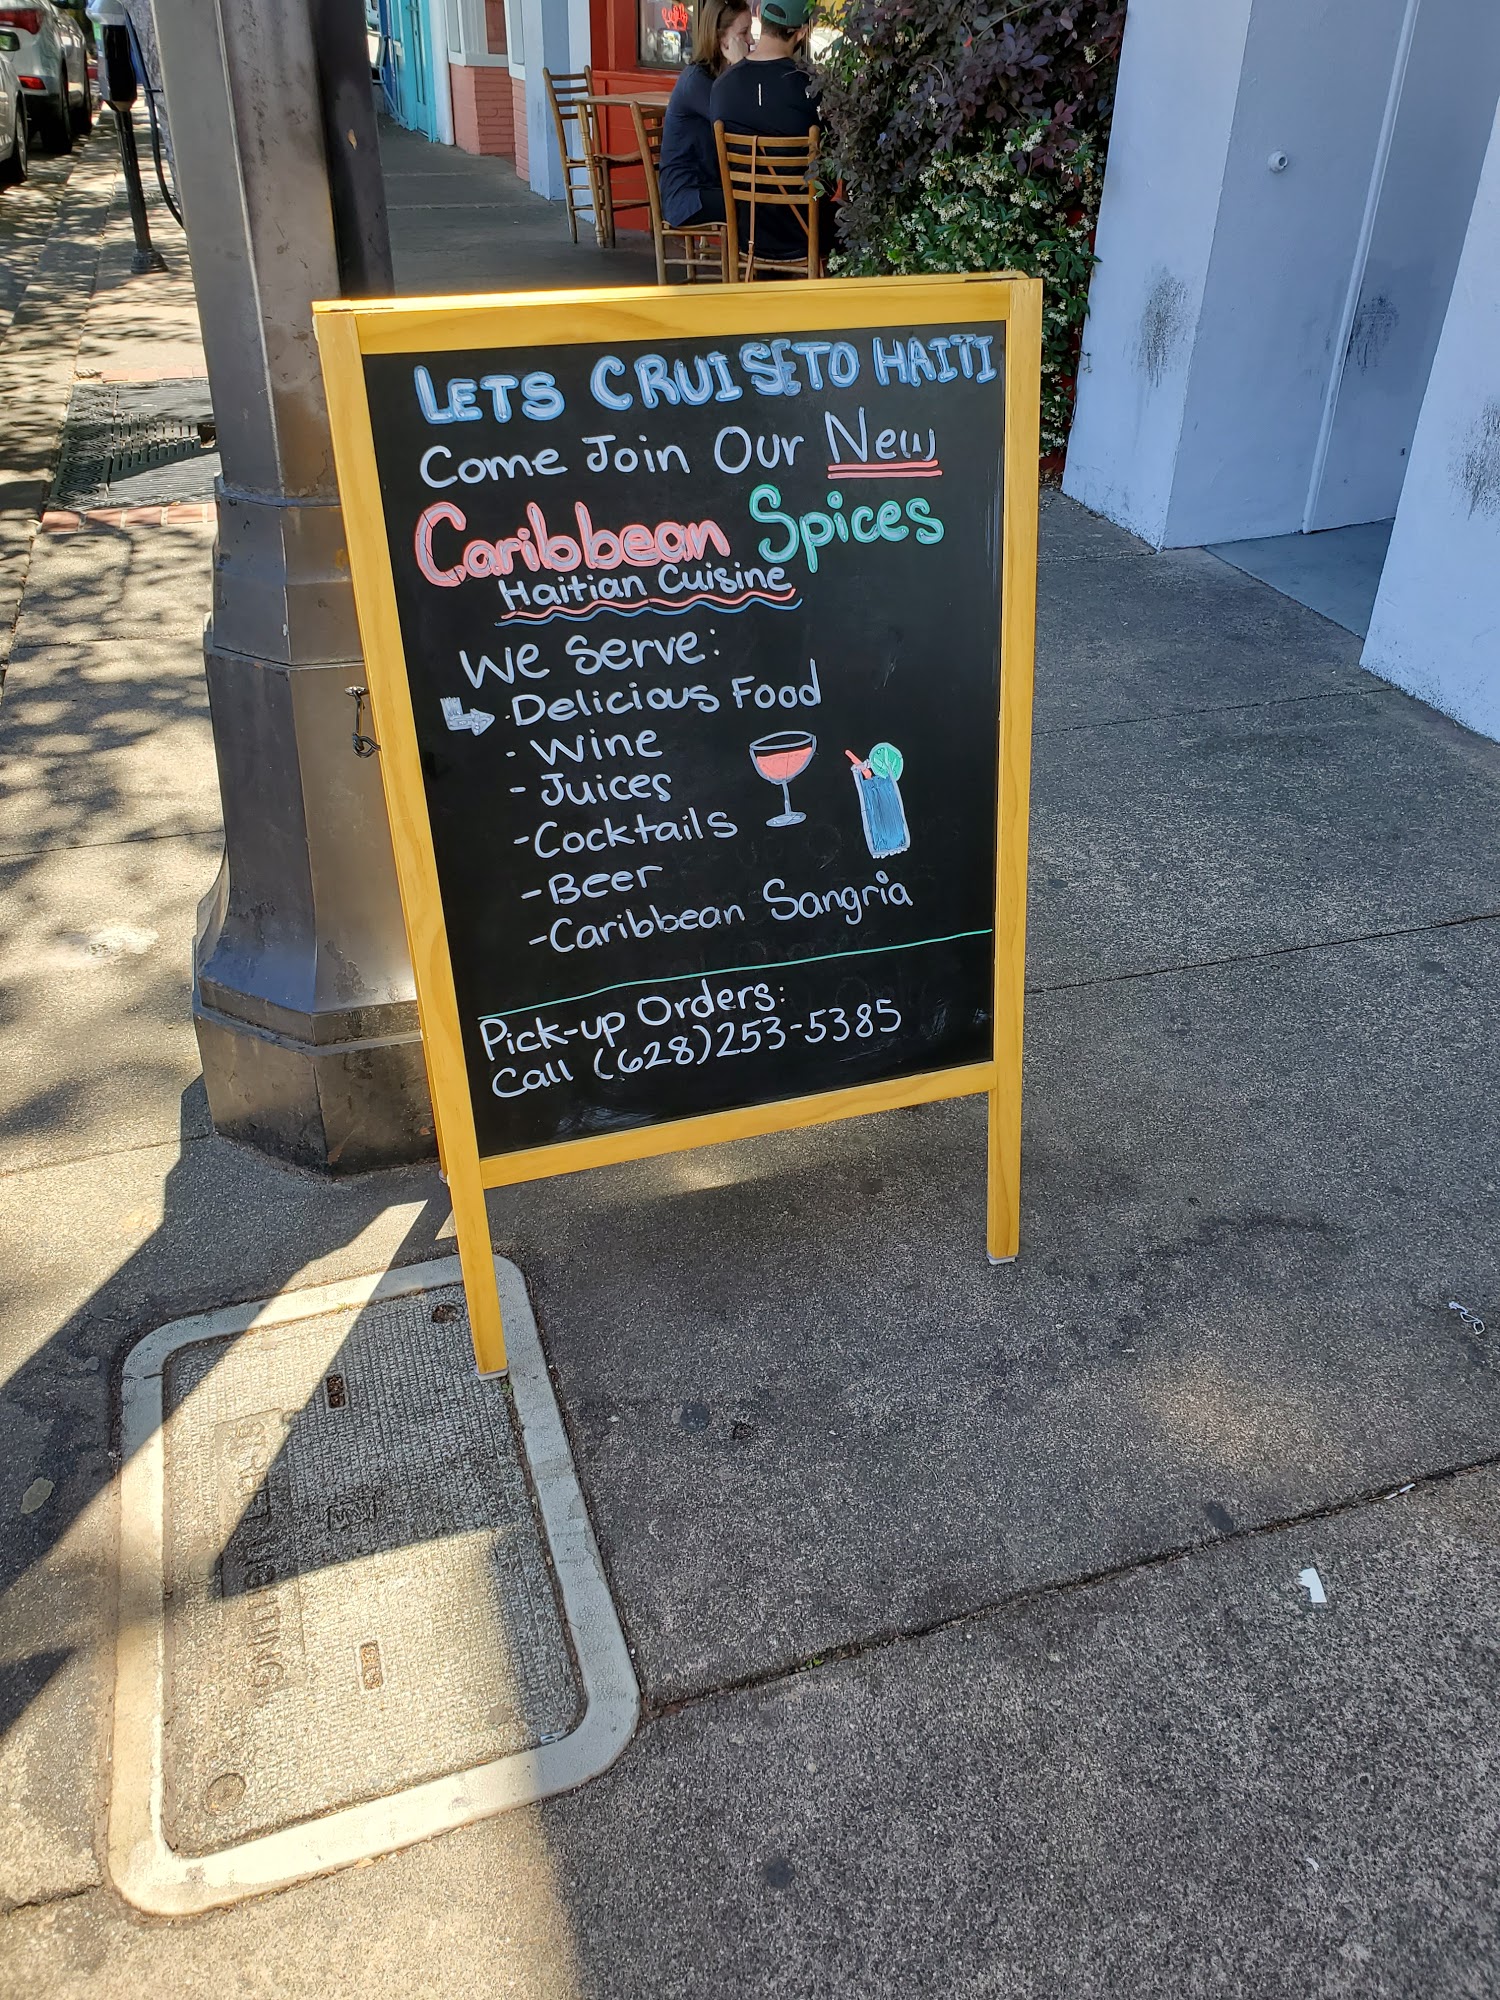 LETS CRUISE TO HAITI
Come Join Our New
Caribbean Spices
Haitian Cuisine
We Serve:
- Delicious Food
- Wine
- Juices
- Cocktails
- Beer
- Caribbean Sangria
Pick-up Orders:
Call (628)253-5385
STREET LIGHTING